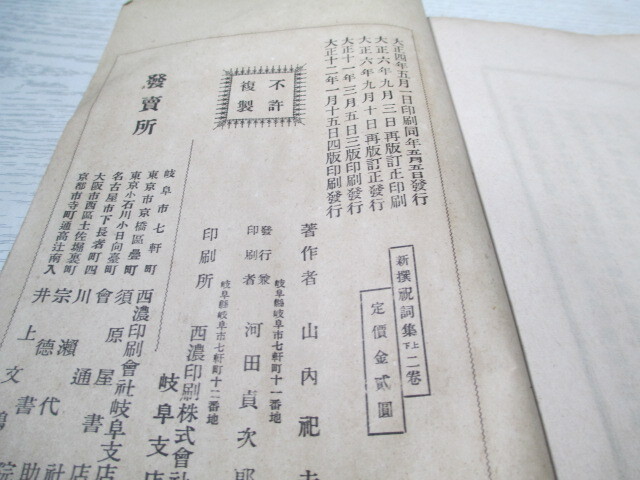 大正四年五月一日印刷同年五月五日發行
大正六年九月三日再版訂正印刷
大正六年九月十日再版訂正發行
大正十一年三月五日三版印刷發行
大正十二年一月十五日四版印刷發行
不許
複製
新撰祝詞集上下二卷
定價金貳圓
著作者 山内祀夫
發行兼
印刷者
岐阜縣岐阜市七軒町十一番地
河田貞次郎
岐阜縣岐阜市七軒町十二番地
印刷所 西濃印刷株式會社
岐阜支店
發賣所
岐阜市七軒町 西濃印刷會社岐阜支店
東京市京橋區疊町 須原屋書店
東京小石川小日向臺町 會通社
名古屋市下長者町四 川瀬代助
大阪市西區土佐堀裏町 宗德書院
京都市寺町通高辻南入 井上文鴻堂